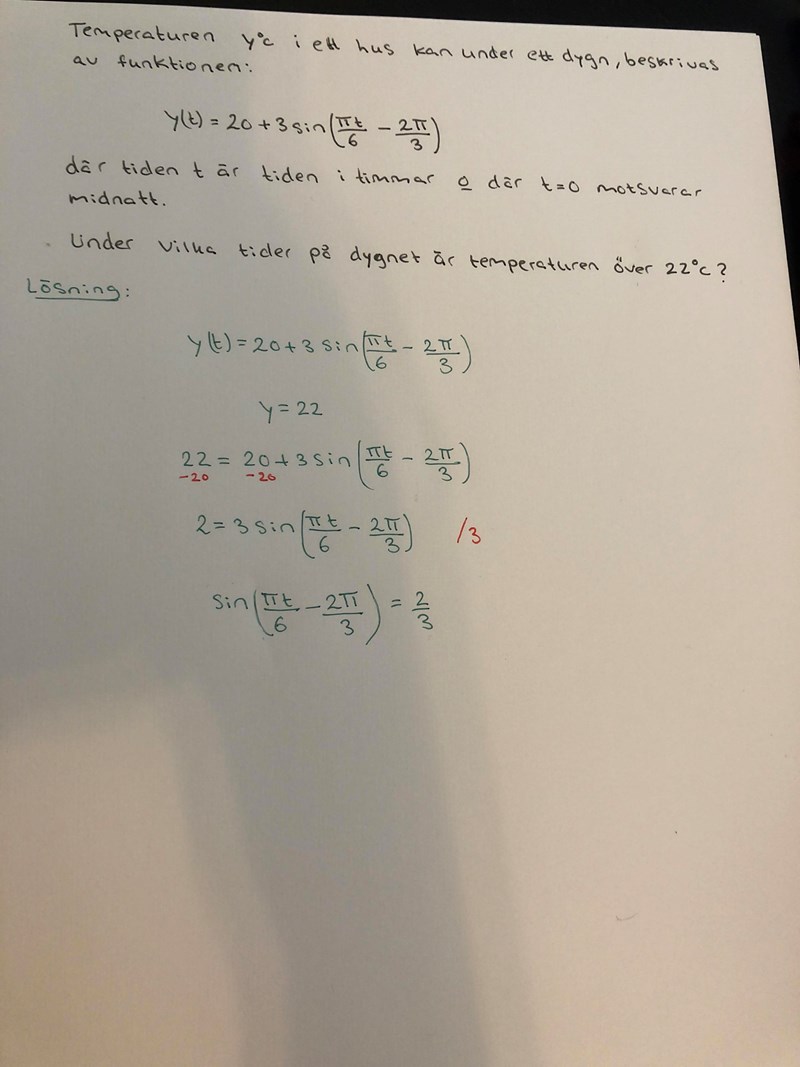 Temperaturen y°c i ett hus kan under ett dygn, beskrivas
av funktionen:
y(t) = 20 + 3 sin(πt/6 − 2π/3)
där tiden t är tiden i timmar o där t=0 motsvarar
midnatt.
Under vilka tider på dygnet är temperaturen över 22°c?
Lösning:
y(t) = 20 + 3 sin(πt/6 − 2π/3)
y = 22
22 = 20 + 3 sin(πt/6 − 2π/3)
-20 -20
2 = 3 sin(πt/6 − 2π/3) /3
sin(πt/6 − 2π/3) = 2/3